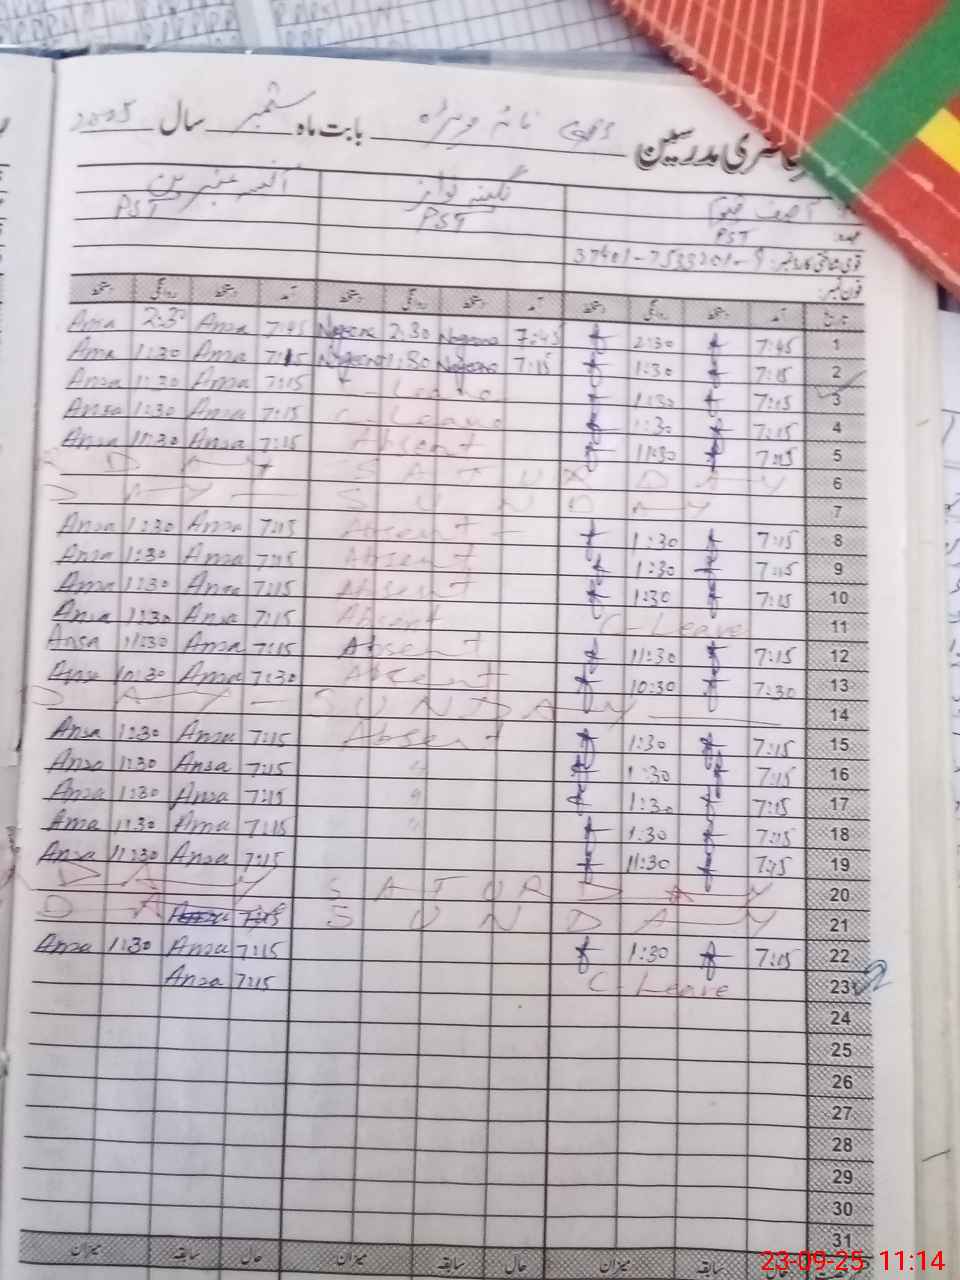 حاضری مدرسین بابت ماہ ستمبر سال 2025
PST PST PST
قومی شناختی کارڈ نمبر:
فون نمبر:
تاریخ آمد دستخط روانگی دستخط آمد دستخط روانگی دستخط آمد دستخط روانگی دستخط
1 7:45 2:30 7:45 Nageena 2:30 Nageena 7:45 Ansa 2:30 Ansa
2 7:15 1:30 7:15 Nageena 1:30 Nageena 7:15 Ansa 1:30 Ansa
3 7:15 1:30 C-Leave 7:15 Ansa 1:30 Ansa
4 7:15 1:30 C-Leave 7:15 Ansa 1:30 Ansa
5 7:15 11:30 Absent 7:15 Ansa 11:30 Ansa
6 SATURDAY
7 SUNDAY
8 7:15 1:30 Absent 7:15 Ansa 1:30 Ansa
9 7:15 1:30 Absent 7:15 Ansa 1:30 Ansa
10 7:15 1:30 Absent 7:15 Ansa 1:30 Ansa
11 C-Leave Absent 7:15 Ansa 1:30 Ansa
12 7:15 11:30 Absent 7:15 Ansa 11:30 Ansa
13 7:30 10:30 Absent 7:30 Ansa 10:30 Ansa
14 SUNDAY
15 7:15 1:30 Absent 7:15 Ansa 1:30 Ansa
16 7:15 1:30 7:15 Ansa 1:30 Ansa
17 7:15 1:30 7:15 Ansa 1:30 Ansa
18 7:15 1:30 7:15 Ansa 1:30 Ansa
19 7:15 11:30 7:15 Ansa 11:30 Ansa
20 SATURDAY
21 SUNDAY
22 7:15 1:30 7:15 Ansa 1:30 Ansa
23 C-Leave 7:15 Ansa
24
25
26
27
28
29
30
31
حال سابقہ میزان حال سابقہ میزان حال سابقہ میزان
23-09-25 11:14